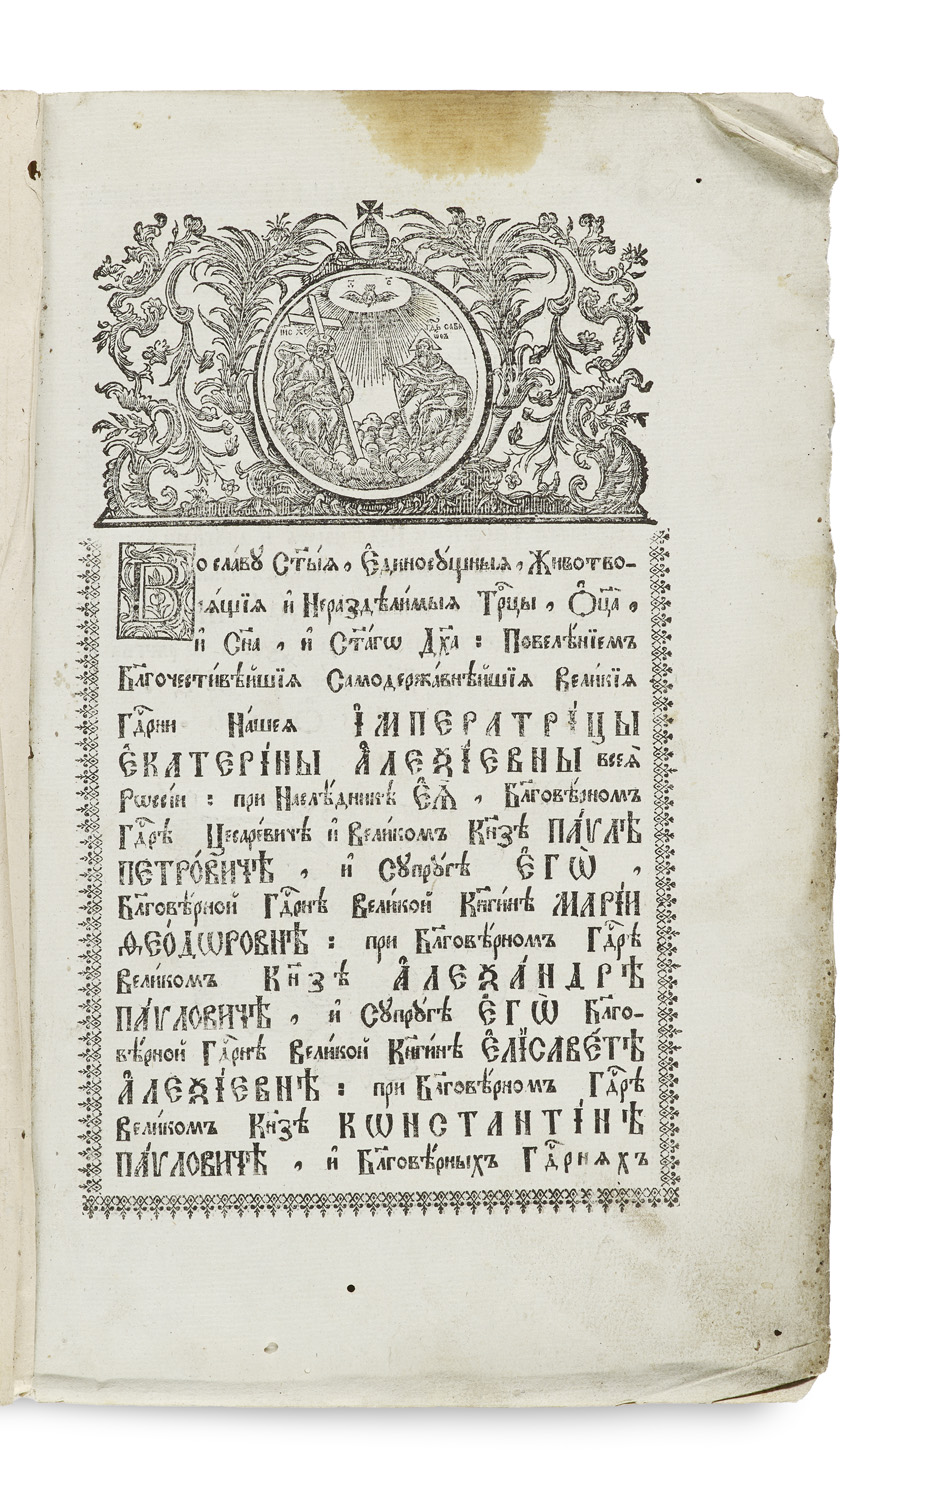 І҃С Х҃С
Гд҃ь саваѡѳъ
Во сла́ву Ст҃ы́ѧ, Є҆диносꙋ́щныѧ, Животво-
рѧ́щїѧ и҆ Нераздѣли́мыѧ Трⷪ҇цы, Ѻ҆ц҃а̀,
и҆ Сн҃а, и҆ Ст҃а́гѡ Дх҃а: Повелѣ́нїемъ
Бл҃гочести́вѣйшїѧ Самодержа́внѣйшїѧ Вели́кїѧ
Гдⷭ҇рни На́шеѧ І҆МПЕРАТРІ́ЦЫ
Є҆КАТЕРІ́НЫ А҆ЛЕѮІ́ЕВНЫ всеѧ̀
Рѡссі́и: при Наслѣ́дникѣ Є҆Ѧ̀, Бл҃говѣ́рномъ
Гдⷭ҇рѣ Цесаре́вичѣ и҆ Вели́комъ Кн҃зѣ ПА́ѴЛѢ
ПЕТРО́ВИЧѢ, и҆ Сꙋпрꙋ́гѣ Є҆ГѠ̀,
Бл҃говѣ́рной Гдⷭ҇рнѣ Вели́кой Кн҃ги́нѣ МАРІ́И
Ѳ́ЕО́ДѠРОВНѢ: при Бл҃говѣ́рномъ Гдⷭ҇рѣ
Вели́комъ Кн҃зѣ А҆ЛЕѮА́НДРѢ
ПА́ѴЛОВИЧѢ, и҆ Сꙋпрꙋ́гѣ Є҆ГѠ̀ Бл҃го-
вѣ́рной Гдⷭ҇рнѣ Вели́кой Кн҃ги́нѣ Є҆ЛІСАВЕ́ТѢ
А҆ЛЕѮІ́ЕВНѢ: при Бл҃говѣ́рномъ Гдⷭ҇рѣ
Вели́комъ Кн҃зѣ КѠНСТАНТІ́НѢ
ПА́ѴЛОВИЧѢ, и҆ Бл҃говѣ́рныхъ Гдⷭ҇рнѧхъ